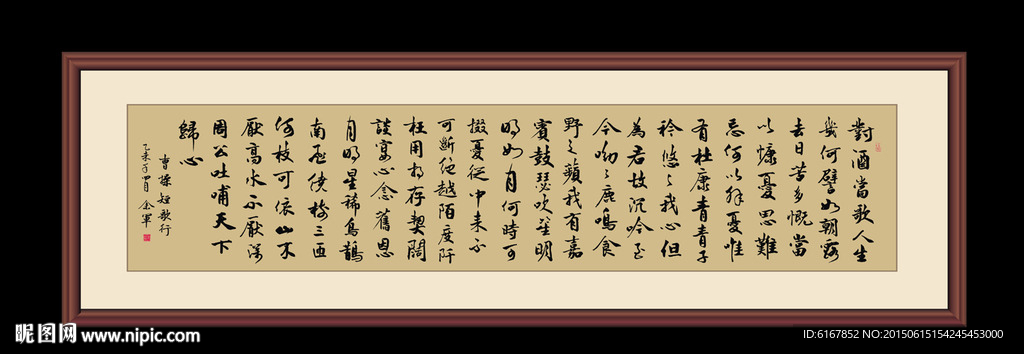 對酒當歌人生
幾何譬如朝露
去日苦多慨當
以慷憂思難
忘何以解憂惟
有杜康青青子
衿悠々我心但
為君故沉吟至
今呦々鹿鳴食
野之蘋我有嘉
賓鼓瑟吹笙明
明如月何時可
掇憂從中來不
可斷絕越陌度阡
枉用相存契闊
談宴心念舊恩
月明星稀烏鵲
南飛繞樹三匝
何枝可依山不
厭高水不厭深
周公吐哺天下
歸心
曹操短歌行
乙未年四月金軍
昵图网 www.nipic.com
ID:6167852 NO:20150615154245453000